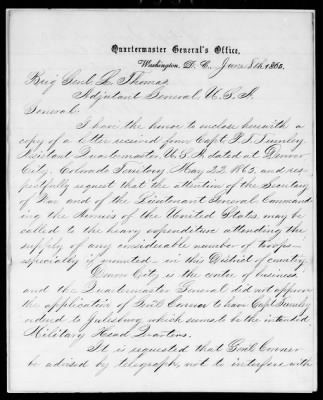 Quartermaster General's Office,
Washington, D. C., June 8th 1865.
Brig Genl L. Thomas
Adjutant General, U. S. A.
General:
I have the honor to enclose herewith a
copy of a letter received from Capt.
Assistant Quartermaster U. S. A. dated at Denver
City, Colorado Territory May 22. 1865, and res-
pectfully request that the attention of the Secretary
of War and of the Lieutenant General Command-
ing the Armies of the United States, may be
called to the heavy expenditure attending the
supply of any considerable number of troops
especially if mounted - in this District of country.
Denver City is the centre of business
and the Quartermaster General did not approve
the application of Genl Connor to have Capt
ordered to Julesburg which seems to be the intended
Military Head Quarters.
It is requested that Genl Connor
be advised by telegraph, not to interfere with